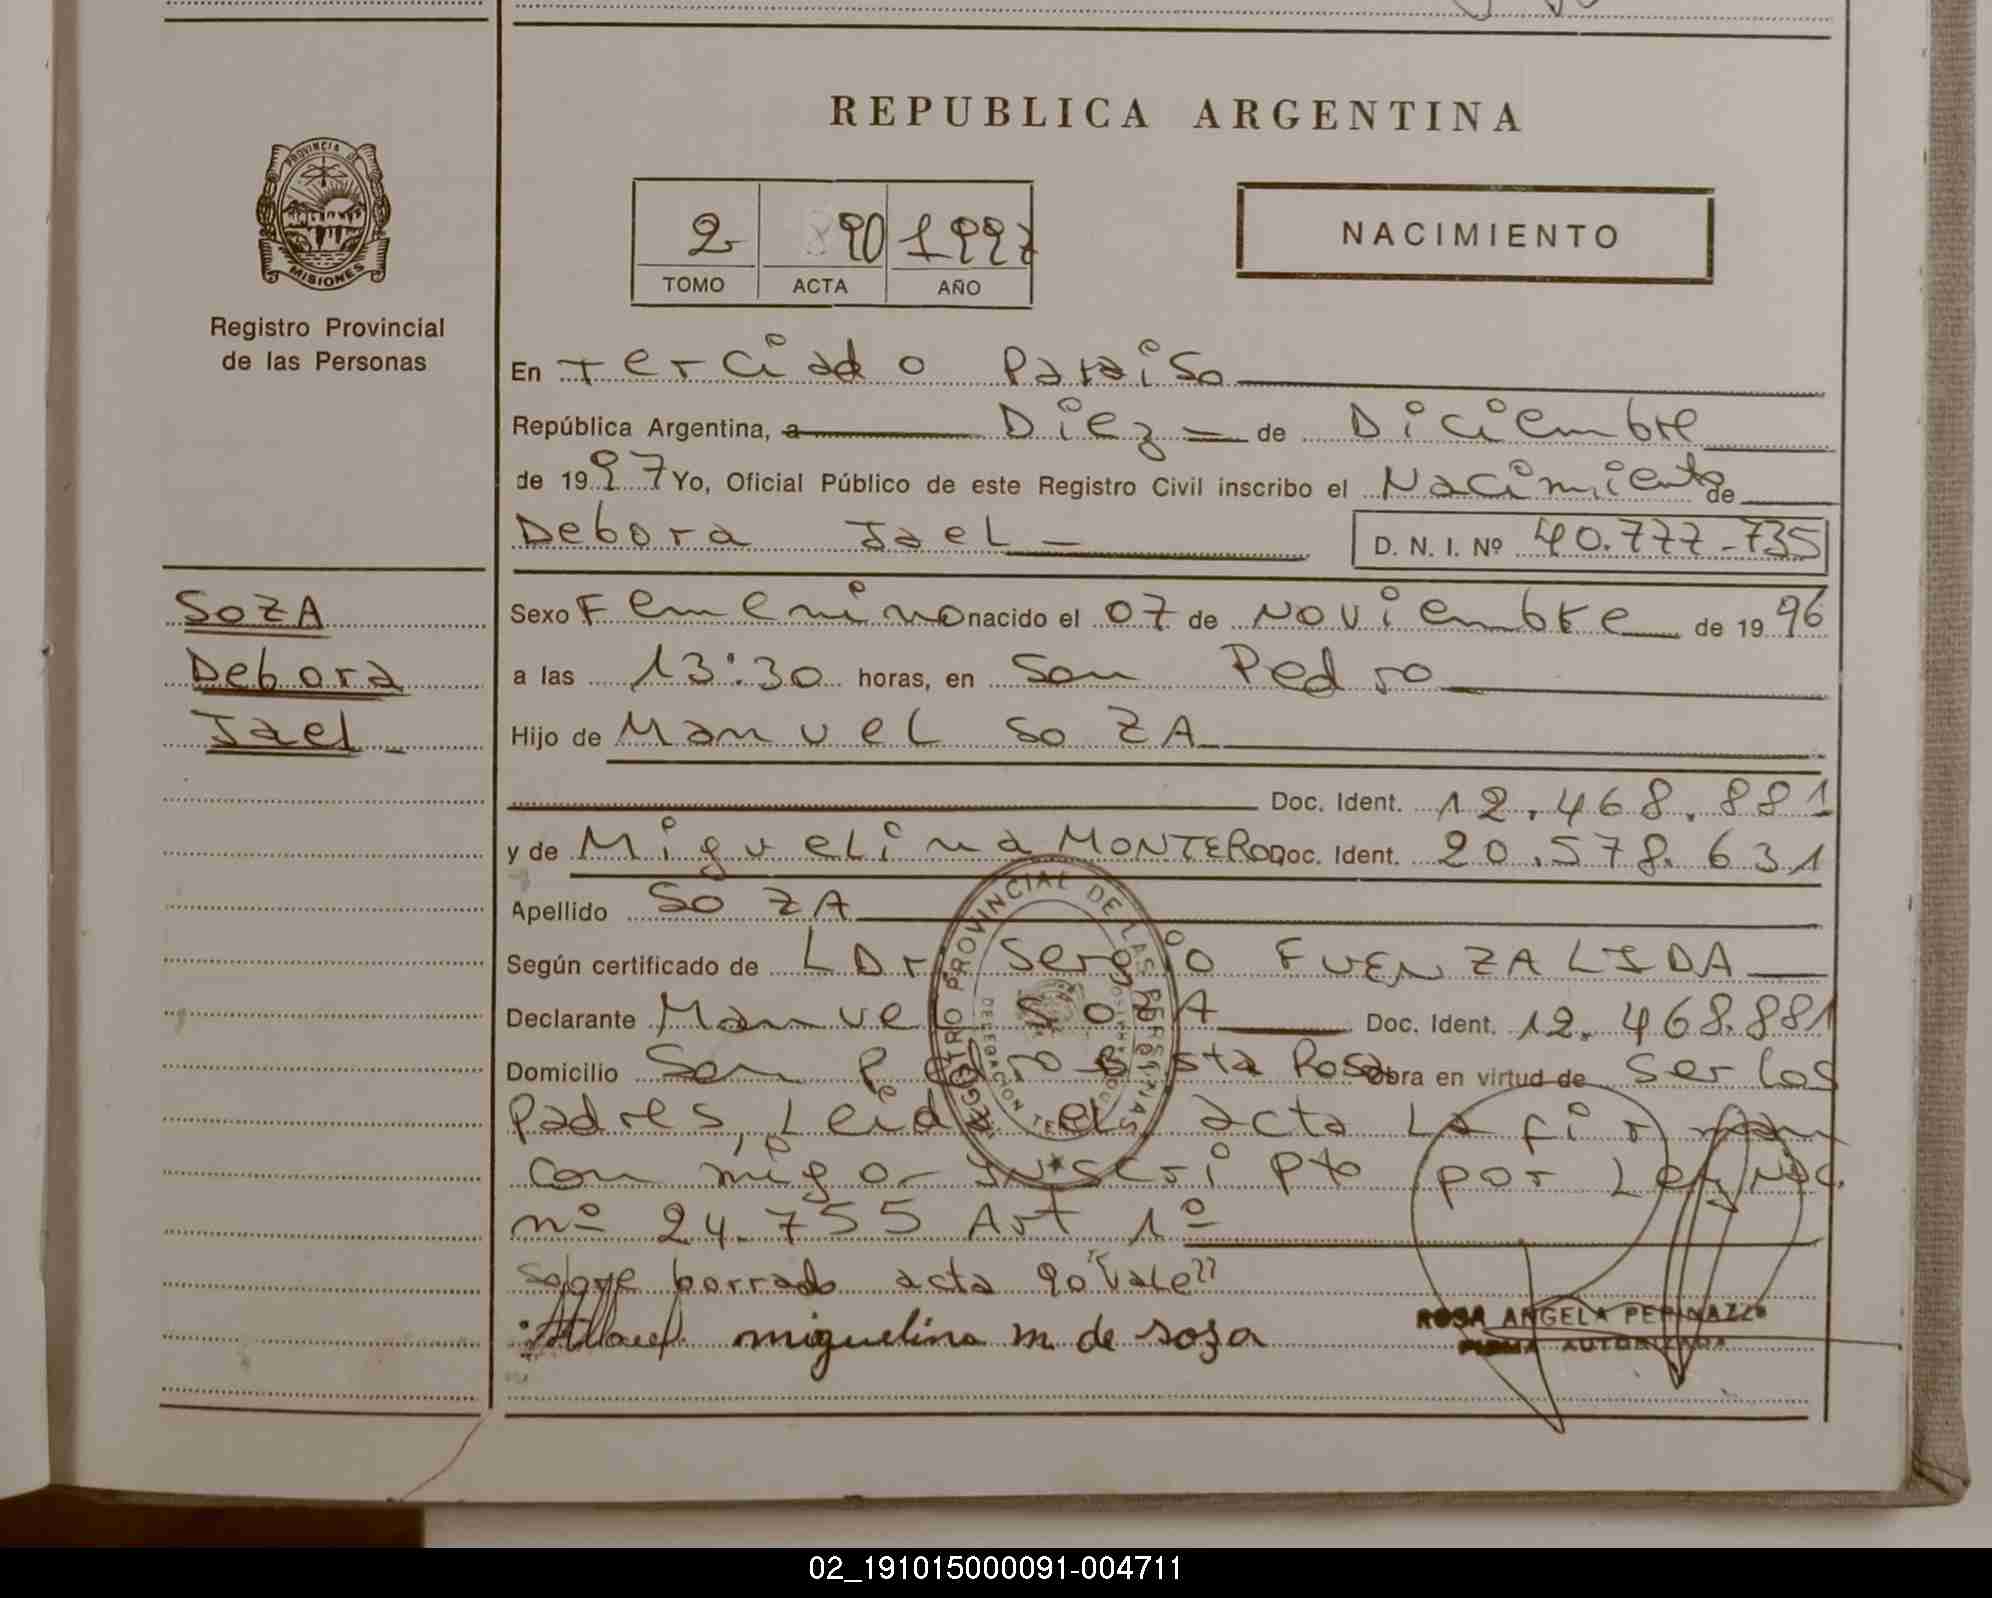 REPUBLICA ARGENTINA
PROVINCIA DE
MISIONES
2 90 1997
TOMO ACTA AÑO
NACIMIENTO
Registro Provincial
de las Personas
En Terciado Paraiso
República Argentina, a Diez de Diciembre
de 1997 Yo, Oficial Público de este Registro Civil inscribo el Nacimiento de
Debora Jael D. N. I. Nº 40.777-735
SOZA
Debora
Jael
Sexo Femenino nacido el 07 de Noviembre de 1996
a las 13:30 horas, en San Pedro
Hijo de Manuel SOZA
Doc. Ident. 12.468.881
y de Miguelina MONTERO Doc. Ident. 20.578.631
Apellido SOZA
Según certificado de L Dr Sergio FUENZALIDA
Declarante Manuel SOZA Doc. Ident. 12.468.881
Domicilio San Pedro Bº Sta Rosa Obra en virtud de ser los
Padres, Leida el acta La firman
con migo- Inscripto por Ley Nac.
nº 24.755 Art 1º
sobre borrado acta 90 "Vale"
miguelina m de soza
REGISTRO PROVINCIAL DE LAS PERSONAS
DELEGACION
ROSA ANGELA PERINAZZO
FIRMA AUTORIZADA
02_191015000091-004711